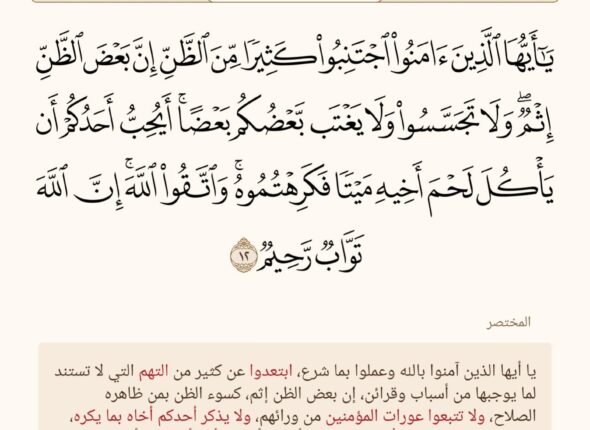 يَٰٓأَيُّهَا ٱلَّذِينَ ءَامَنُوا۟ ٱجْتَنِبُوا۟ كَثِيرًا مِّنَ ٱلظَّنِّ إِنَّ بَعْضَ ٱلظَّنِّ
إِثْمٌ ۖ وَلَا تَجَسَّسُوا۟ وَلَا يَغْتَب بَّعْضُكُم بَعْضًا ۚ أَيُحِبُّ أَحَدُكُمْ أَن
يَأْكُلَ لَحْمَ أَخِيهِ مَيْتًا فَكَرِهْتُمُوهُ ۚ وَٱتَّقُوا۟ ٱللَّهَ ۚ إِنَّ ٱللَّهَ
تَوَّابٌ رَّحِيمٌ ١٢
المختصر
يا أيها الذين آمنوا بالله وعملوا بما شرع، ابتعدوا عن كثير من التهم التي لا تستند
لما يوجبها من أسباب وقرائن، إن بعض الظن إثم، كسوء الظن بمن ظاهره
الصلاح، ولا تتبعوا عورات المؤمنين من ورائهم، ولا يذكر أحدكم أخاه بما يكره،